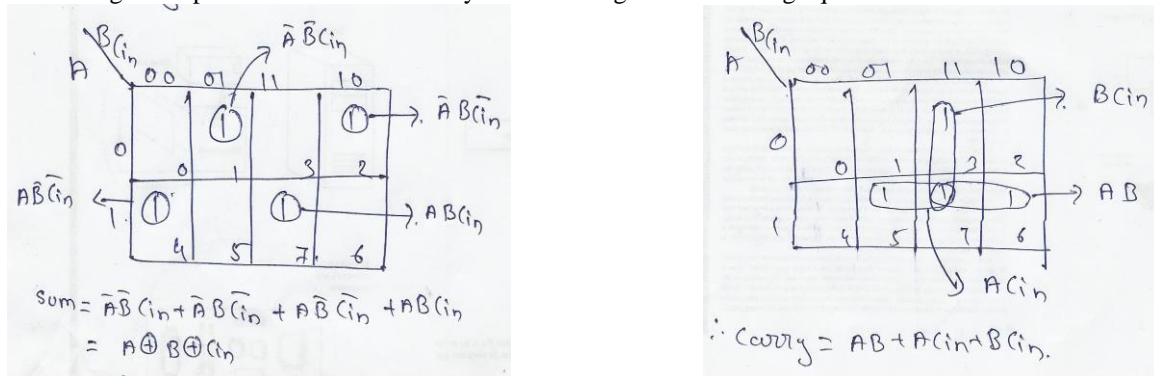 ĀB̄Cin
BCin
A
00 01 11 10
1 1
ĀBC̄in
0
0 1 3 2
AB̄C̄in
1 1 1
ABCin
4 5 7 6
Sum = ĀB̄Cin + ĀBC̄in + AB̄C̄in + ABCin
= A⊕B⊕Cin
BCin
A
00 01 11 10
1
BCin
0
0 1 3 2
1 1 1
AB
1
4 5 7 6
ACin
∴ Carry = AB + ACin + BCin.